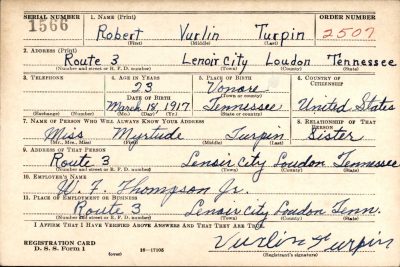 SERIAL NUMBER 1. NAME (Print) ORDER NUMBER
1566 Robert Vurlin Turpin 2507
(First) (Middle) (Last)
2. ADDRESS (Print)
Route 3 Lenoir City Loudon Tennessee
(Number and street or R. F. D. number) (Town) (County) (State)
3. TELEPHONE 4. AGE IN YEARS 5. PLACE OF BIRTH 6. COUNTRY OF CITIZENSHIP
23 Vonore
DATE OF BIRTH (Town or county)
March 18, 1917 Tennessee United States
(Exchange) (Number) (Mo.) (Day) (Yr.) (State or country)
7. NAME OF PERSON WHO WILL ALWAYS KNOW YOUR ADDRESS 8. RELATIONSHIP OF THAT PERSON
Miss Myrtude Turpin Sister
(Mr., Mrs., Miss) (First) (Middle) (Last)
9. ADDRESS OF THAT PERSON
Route 3 Lenoir City Loudon Tennessee
(Number and street or R. F. D. number) (Town) (County) (State)
10. EMPLOYER'S NAME
W. F. Thompson Jr.
11. PLACE OF EMPLOYMENT OR BUSINESS
Route 3 Lenoir City Loudon Tenn.
(Number and street or R. F. D. number) (Town) (County) (State)
I AFFIRM THAT I HAVE VERIFIED ABOVE ANSWERS AND THAT THEY ARE TRUE.
REGISTRATION CARD Vurlin Turpin
D. S. S. Form 1 (over) 16—17105 (Registrant's signature)